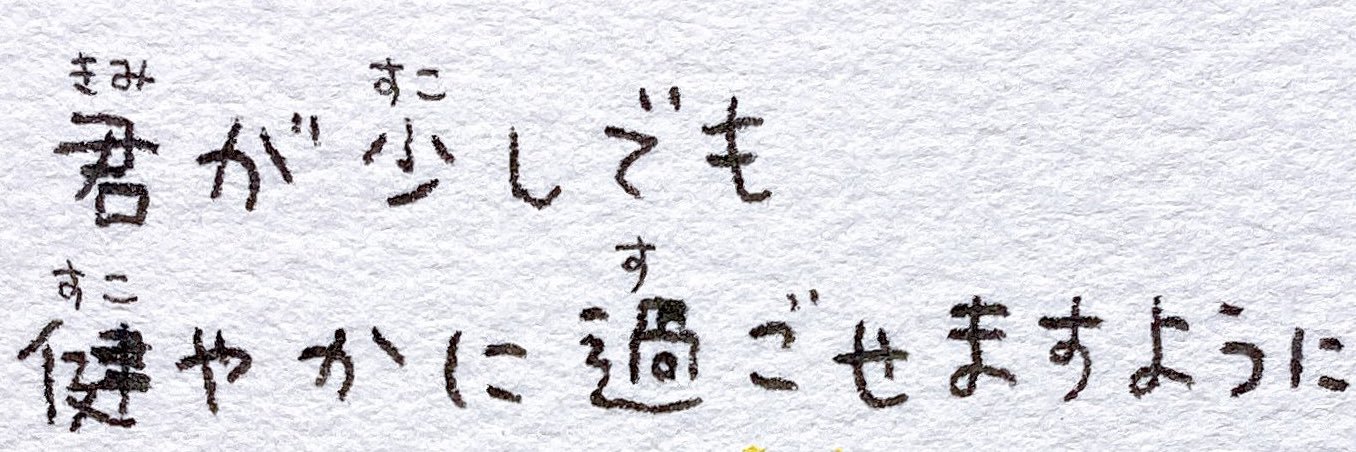 きみ すこ
君が少しでも
すこ す
健やかに過ごせますように